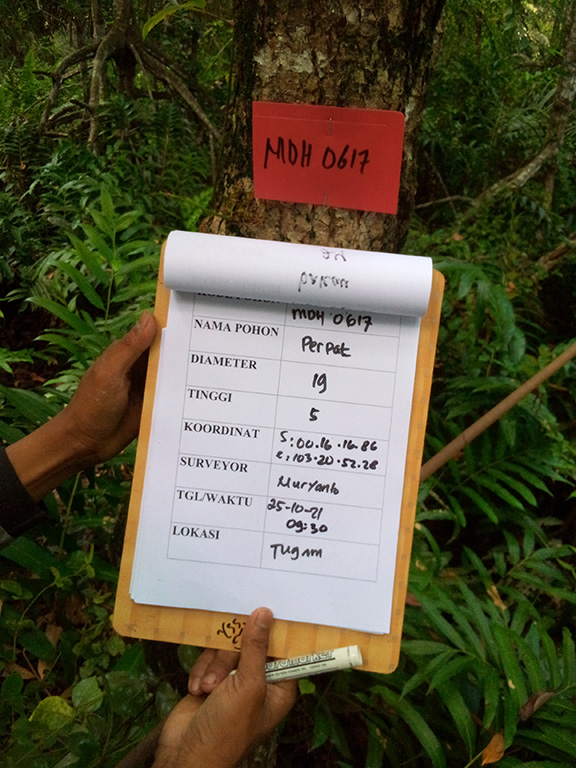 MDH 0617
MDH 0617
NAMA POHON
Perpat
DIAMETER
19
TINGGI
5
KOORDINAT
S:00.16.16.86
E:103.20.52.28
SURVEYOR
Muryanto
TGL/WAKTU
25-10-21
09:30
LOKASI